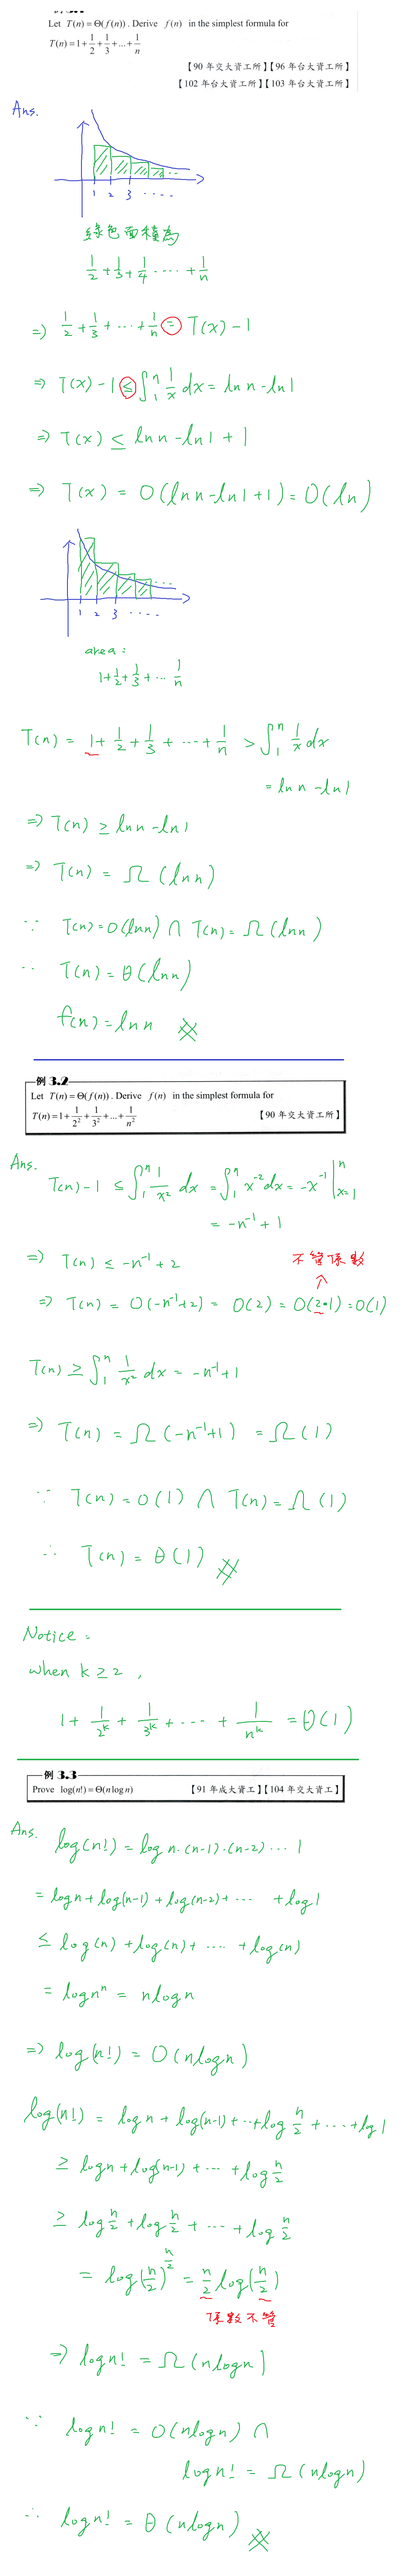 Let T(n) = Θ(f(n)). Derive f(n) in the simplest formula for
T(n) = 1 + 1/2 + 1/3 + ... + 1/n
【90 年交大資工所】【96 年台大資工所】
【102 年台大資工所】【103 年台大資工所】
Ans.
1 2 3 ....
綠色面積為
1/2 + 1/3 + 1/4 .... + 1/n
⇒ 1/2 + 1/3 + ... + 1/n = T(x) - 1
⇒ T(x) - 1 ≤ ∫₁ⁿ 1/x dx = ln n - ln 1
⇒ T(x) ≤ ln n - ln 1 + 1
⇒ T(x) = O(ln n - ln 1 + 1) = O(ln)
1 2 3 ....
area:
1 + 1/2 + 1/3 + ... 1/n
T(n) = 1 + 1/2 + 1/3 + ... + 1/n > ∫₁ⁿ 1/x dx
= ln n - ln 1
⇒ T(n) ≥ ln n - ln 1
⇒ T(n) = Ω(ln n)
∵ T(n) = O(ln n) ∩ T(n) = Ω(ln n)
∵ T(n) = θ(ln n)
f(n) = ln n
例 3.2
Let T(n) = Θ(f(n)). Derive f(n) in the simplest formula for
T(n) = 1 + 1/2² + 1/3² + ... + 1/n² 【90 年交大資工所】
Ans.
T(n) - 1 ≤ ∫₁ⁿ 1/x² dx = ∫₁ⁿ x⁻² dx = -x⁻¹ |ⁿₓ₌₁
= -n⁻¹ + 1
⇒ T(n) ≤ -n⁻¹ + 2
不管係數
↑
⇒ T(n) = O(-n⁻¹+2) = O(2) = O(2•1) = O(1)
T(n) ≥ ∫₁ⁿ 1/x² dx = -n⁻¹ + 1
⇒ T(n) = Ω(-n⁻¹+1) = Ω(1)
∵ T(n) = O(1) ∩ T(n) = Ω(1)
∴ T(n) = θ(1)
Notice:
when k ≥ 2,
1 + 1/2ᵏ + 1/3ᵏ + .... + 1/nᵏ = θ(1)
例 3.3
Prove log(n!) = Θ(n log n) 【91 年成大資工】【104 年交大資工】
Ans.
log(n!) = log n·(n-1)·(n-2) ... 1
= log n + log(n-1) + log(n-2) + ... + log 1
≤ log(n) + log(n) + .... + log(n)
= log nⁿ = n log n
⇒ log(n!) = O(n log n)
log(n!) = log n + log(n-1) + ... + log n/2 + ... + log 1
≥ log n + log(n-1) + ... + log n/2
≥ log n/2 + log n/2 + ... + log n/2
= log(n/2)^(n/2) = n/2 log(n/2)
係數不管
⇒ log n! = Ω(n log n)
∵ log n! = O(n log n) ∩
log n! = Ω(n log n)
∴ log n! = θ(n log n)